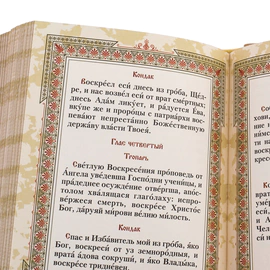 Кондак
Воскре́сл еси́ днесь из гро́ба, Ще́д-
ре, и нас возве́л еси́ от врат сме́ртных;
днесь Ада́м лику́ет, и ра́дуется Е́ва,
вку́пе же и проро́цы с патриа́рхи вос-
пева́ют непреста́нно Боже́ственную
держа́ву вла́сти Твоея́.
Глас четвертый
Тропарь
Све́тлую Воскресе́ния про́поведь от
А́нгела уве́девша Госпо́дни учени́цы, и
пра́деднее осужде́ние отве́ргша, апо́с-
толом хва́лящася глаго́лаху: испро-
ве́ржеся смерть, воскре́се Христо́с
Бог, да́руяй ми́рови ве́лию ми́лость.
Кондак
Спас и Изба́витель мой из гро́ба, я́ко
Бог, воскреси́ от уз земноро́дныя, и
врата́ а́дова сокруши́, и я́ко Влады́ка,
воскре́се тридне́вен.